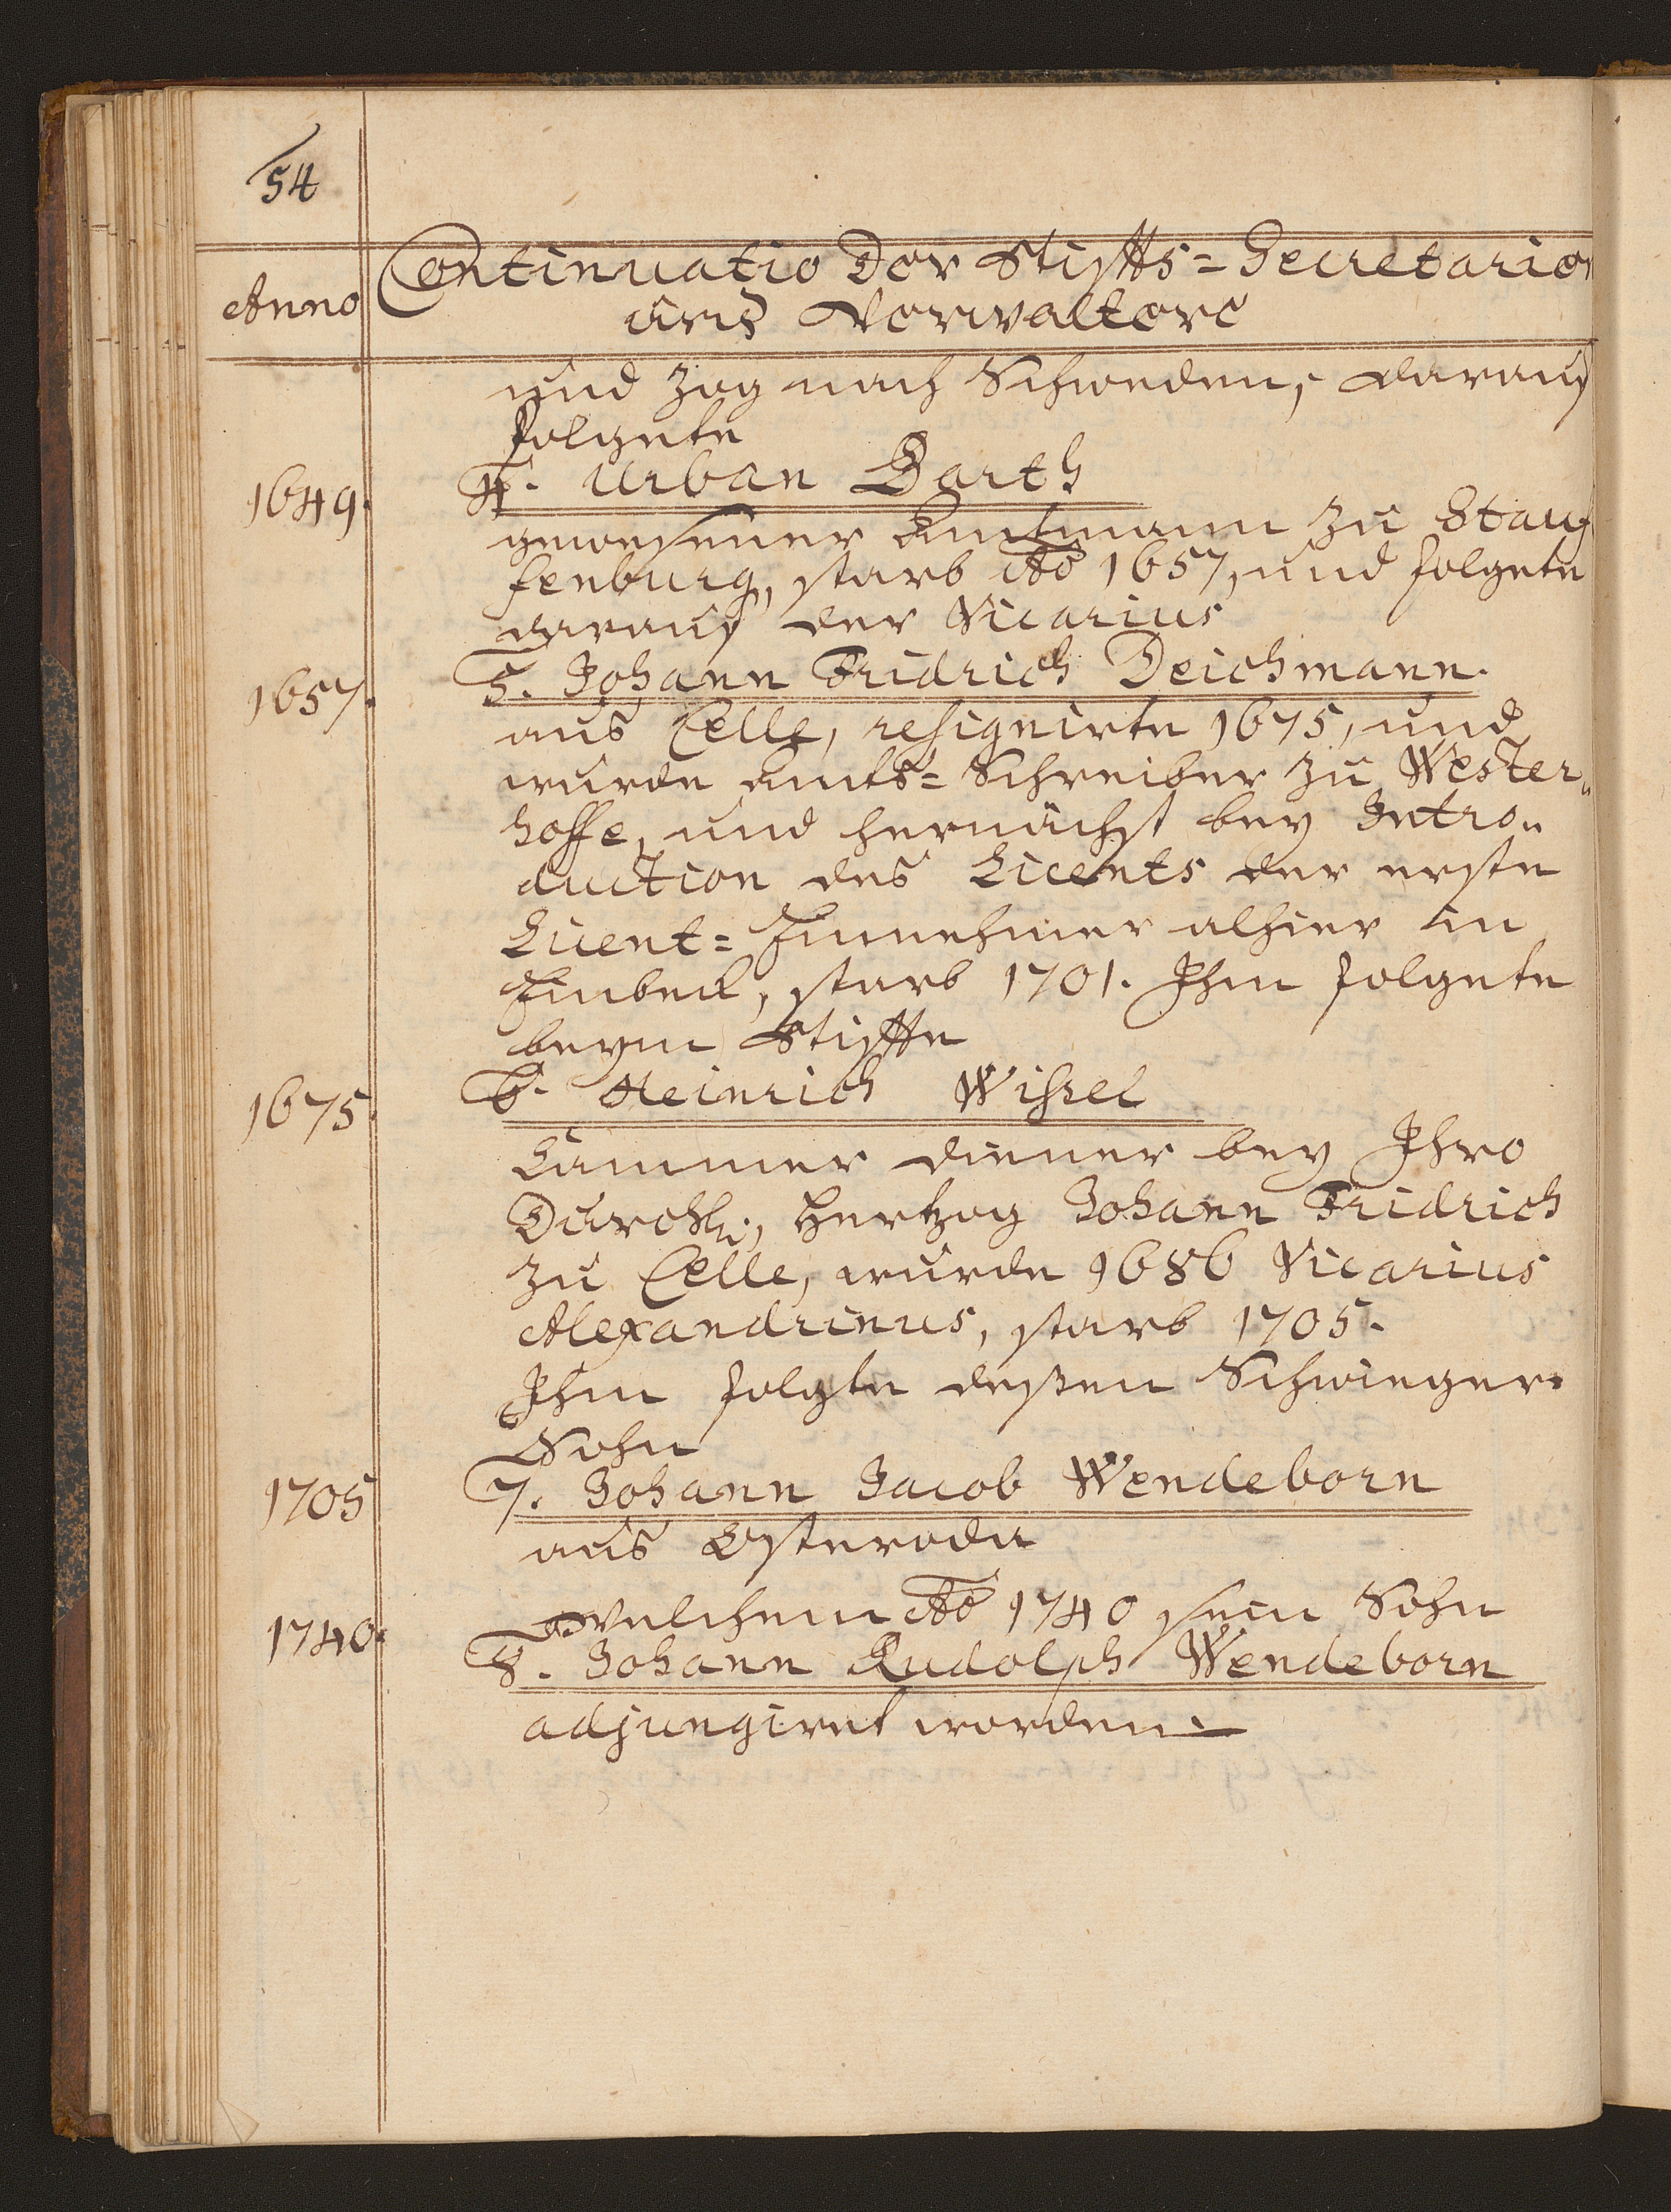 54
Anno
Continuatio der Stiffts=Secretarior
und Verwaltere
und zog nach Schweden, darauf
folgete
1649.
4. Urban Barth
gewesener Amtmann zu Stauf
fenburg, starb Aō 1657, und folgete
darauf der Vicarius
1657.
5. Johann Fridrich Deichmann.
aus Celle, resignirte 1675, und
wurde Amts=Schreiber zu Wester„
hoffe, und hernächst bey Intro„
duction des Licents der erste
Licent=Einnehmer alhier in
Einbeck, starb 1701. Ihm folgete
beym Stiffte
1675.
6. Heinrich Wißel
Cammer diener bey Ihro
Durchl., Hertzog Johann Fridrich
zu Celle, wurde 1686 Vicarius
Alexandrinus, starb 1705.
Ihm folgte deßen Schwieger„
Sohn
1705
7. Johann Jacob Wendeborn
aus Osteroda
1740.
Welchem Aō 1740 sein Sohn
8. Johann Rudolph Wendeborn
adjungiret worden.